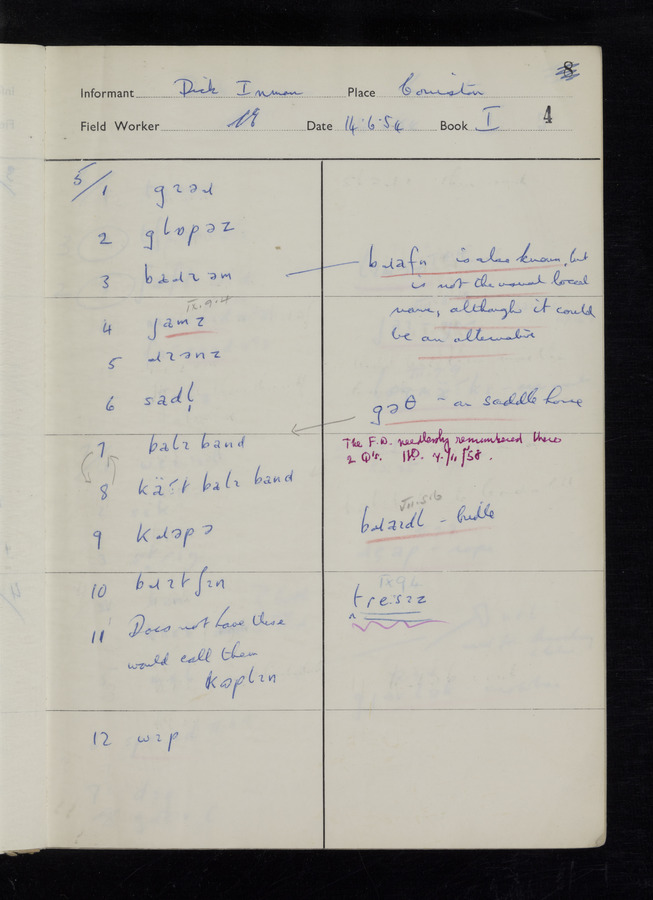 8
Informant Dick Inman Place Coniston
Field Worker Date 14.6.54 Book I 4
5/1 gɪəɹ
2 glɒpəz
3
bɹafn is also known, but
is not the usual local
name, although it could
be an alternative
4 jamz
5 ɹɪənz
6 sadl̩
gəθ – on saddle horse
7 balɪ band
The F.W. needlessly renumbered these
2 Q's.
8 kä:t balɪ band
VII.5.6
9 kɹəpə
bɹaɪdl – bridle
10 bɹɪtʃɪn
tre:sɪz
11 Does not have these
would call them
kɒplɪn
12 wɪp